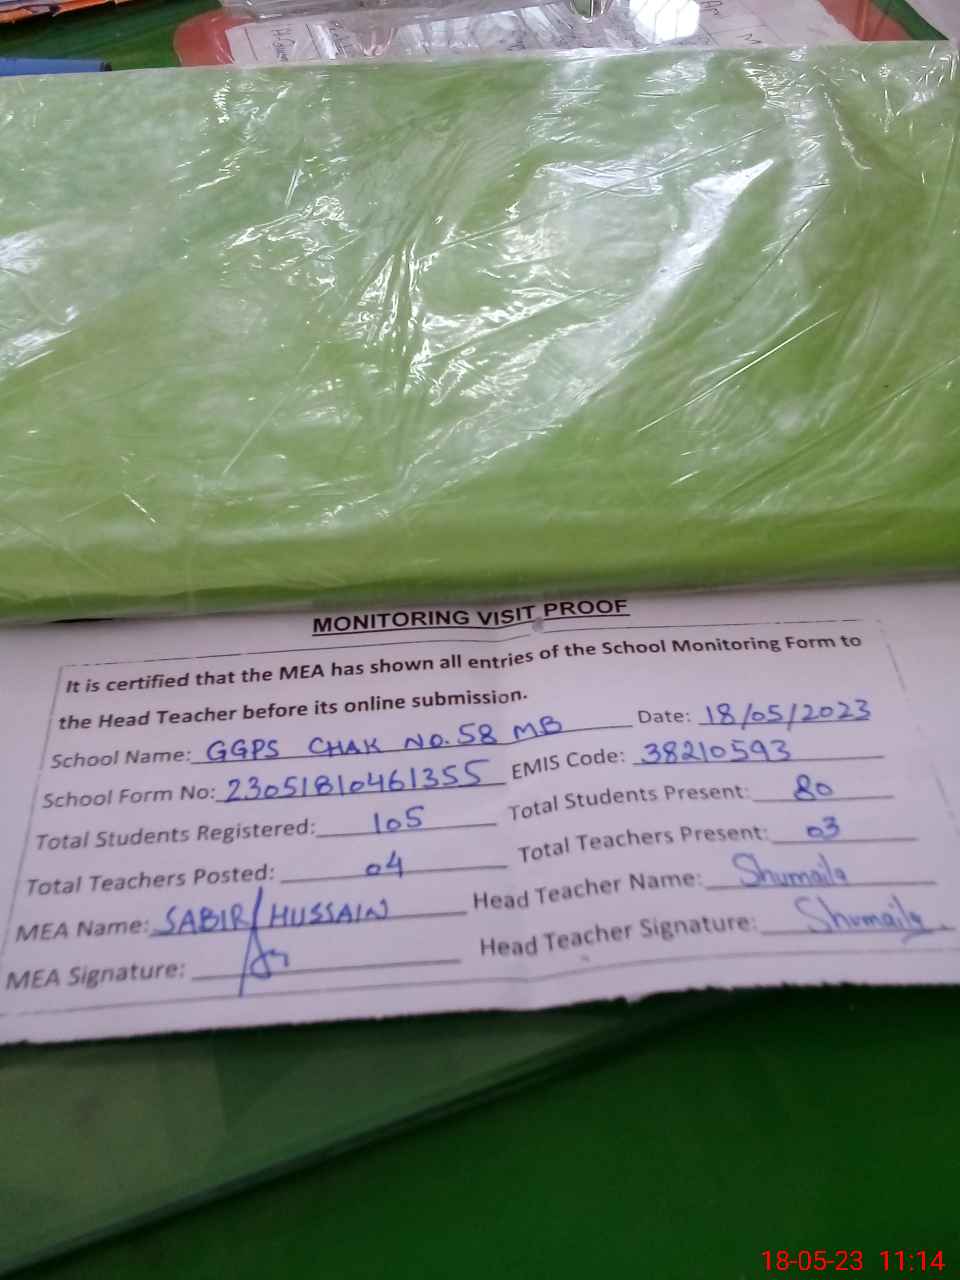 MONITORING VISIT PROOF
It is certified that the MEA has shown all entries of the School Monitoring Form to
the Head Teacher before its online submission.
School Name: GGPS CHAK NO. 58 MB Date: 18/05/2023
School Form No: 23051810461355 EMIS Code: 38210593
Total Students Registered: 105 Total Students Present: 80
Total Teachers Posted: 04 Total Teachers Present: 03
MEA Name: SABIR HUSSAIN Head Teacher Name: Shumaila
MEA Signature: Head Teacher Signature: Shumaila
18-05-23 11:14